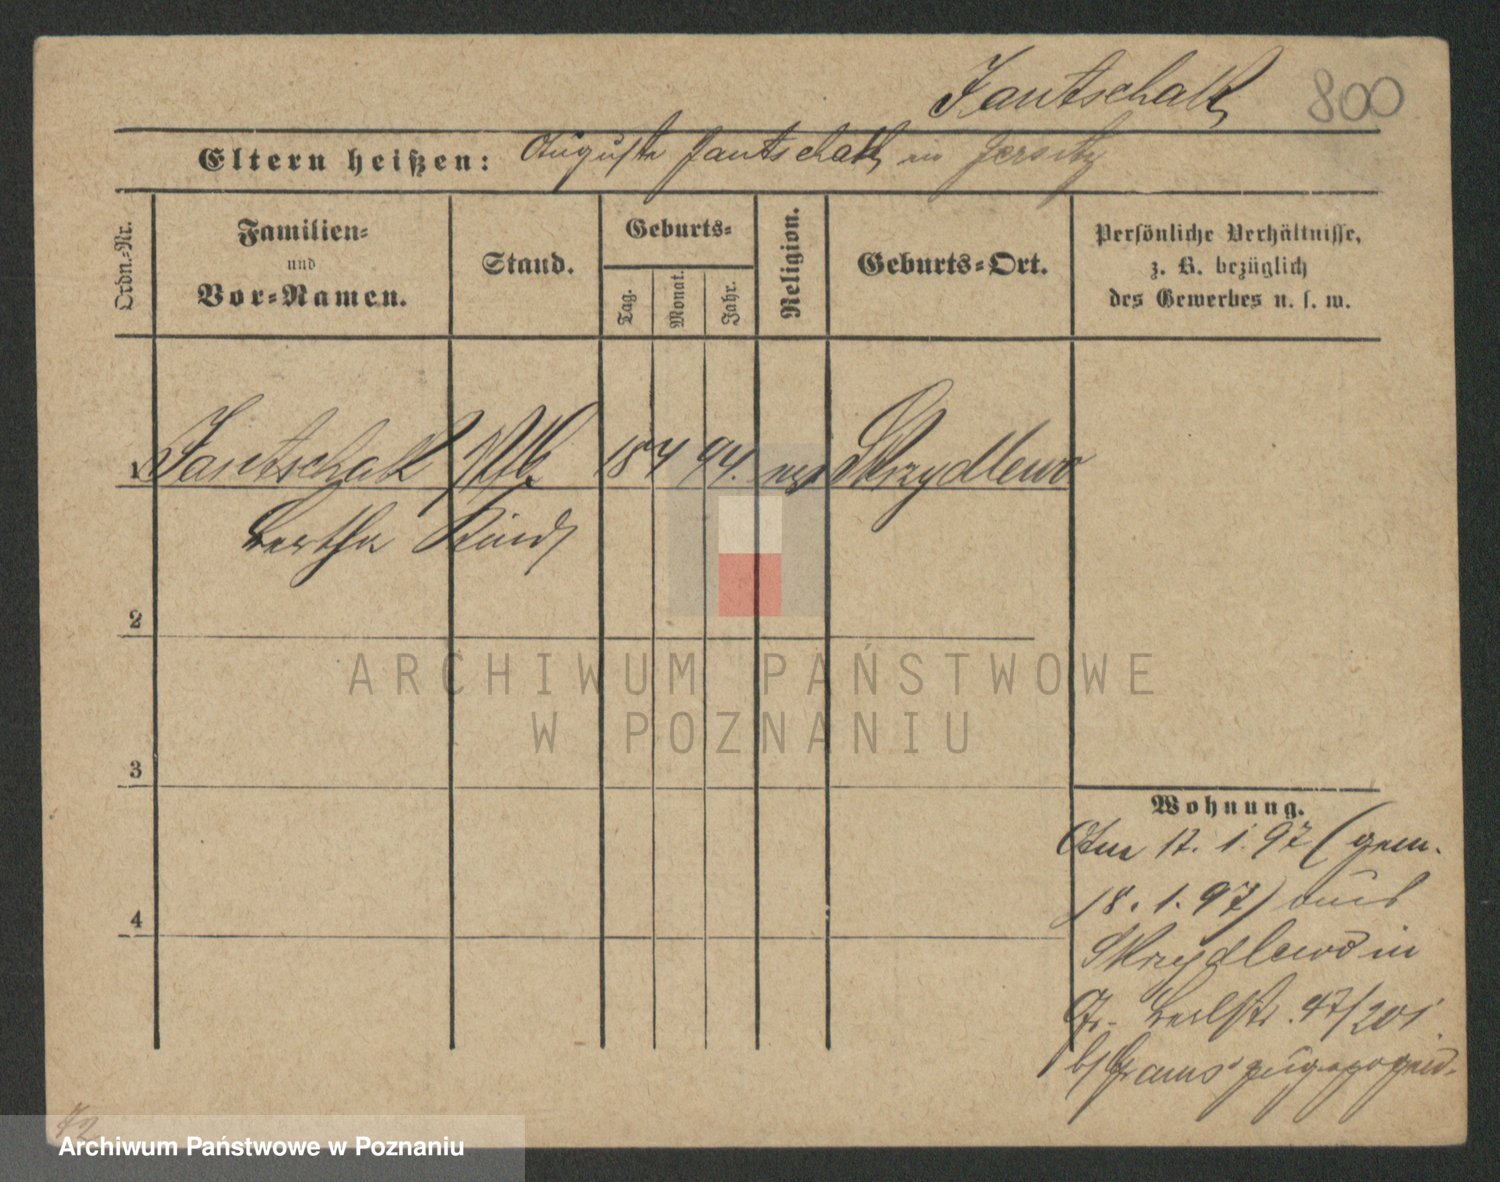 Jantschak 800
Eltern heißen: Auguste Jantschak, in Jersitz
Ordn.-Nr.
Familien-
und
Vor-Namen.
Stand.
Geburts-
Tag.
Monat.
Jahr.
Religion.
Geburts-Ort.
Persönliche Verhältnisse,
z. B. bezüglich
des Gewerbes u. s. w.
1 Jantschak 18 4 94. Skrzydlewo
Bertha Kind
2
3
4
Wohnung.
Am 17. 1. 97 (gem.
18. 1. 97) aus
Skrzydlewo in
Gr. Berlstr. 47/201
b/ zugezogen.
ARCHIWUM PAŃSTWOWE
W POZNANIU
Archiwum Państwowe w Poznaniu